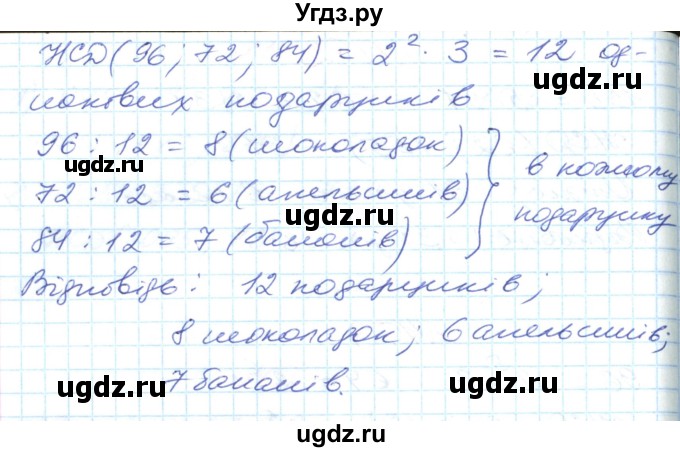 Угдз.ру
НСД(96; 72; 84) = 2². 3 = 12 од-
накових подарунків
96 : 12 = 8 (шоколадок)
72 : 12 = 6 (апельсинів)
84 : 12 = 7 (бананів)
в кожному
подарунку
Відповідь: 12 подарунків;
8 шоколадок; 6 апельсинів;
7 бананів.
ugdz.ru
ugdz.ru
ugdz.ru
ugdz.ru
ugdz.ru
ugdz.ru
ugdz.ru
ugdz.ru
ugdz.ru
ugdz.ru